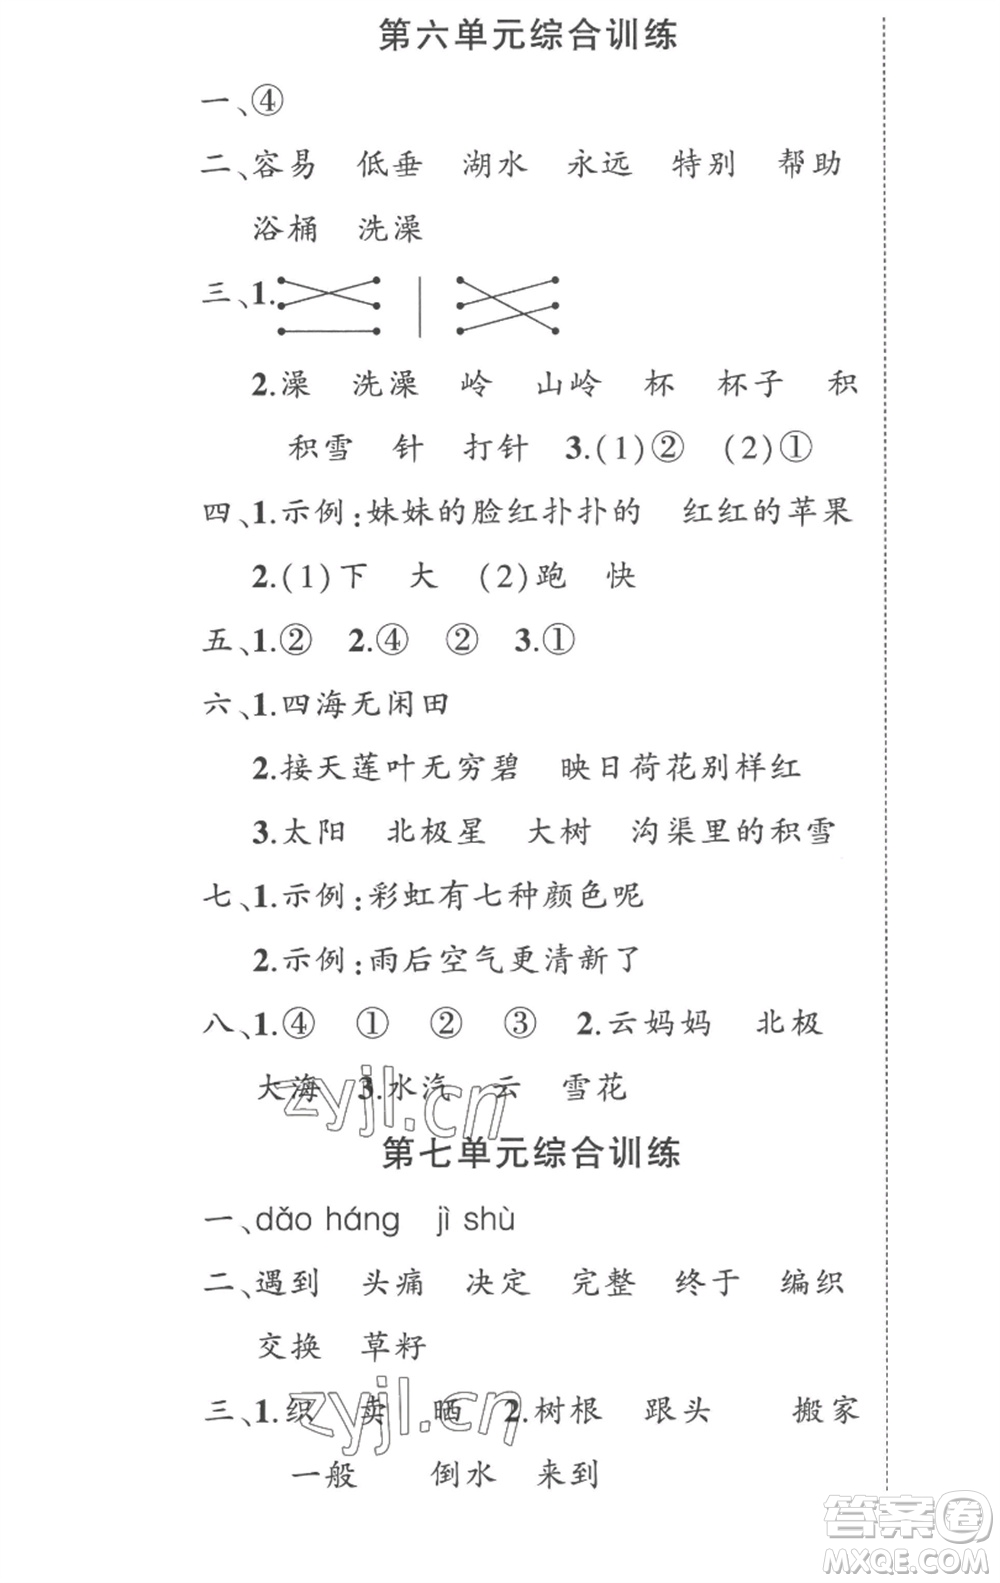 第六单元综合训练
一、④
二、容易 低垂 湖水 永远 特别 帮助
浴桶 洗澡
三、1.
2.澡 洗澡 岭 山岭 杯 杯子 积
积雪 针 打针 3.(1)② (2)①
四、1.示例:妹妹的脸红扑扑的 红红的苹果
2.(1)下 大 (2)跑 快
五、1.② 2.④ ② 3.①
六、1.四海无闲田
2.接天莲叶无穷碧 映日荷花别样红
3.太阳 北极星 大树 沟渠里的积雪
七、1.示例:彩虹有七种颜色呢
2.示例:雨后空气更清新了
八、1.④ ① ② ③ 2.云妈妈 北极
大海 3.水汽 云 雪花
zyjl.cn
第七单元综合训练
一、dǎo háng jì shù
二、遇到 头痛 决定 完整 终于 编织
交换 草籽
三、1.织 卖 晒 2.树根 跟头 搬家
zyjl.cn
一般 倒水 来到
答案卷
MXQE.COM